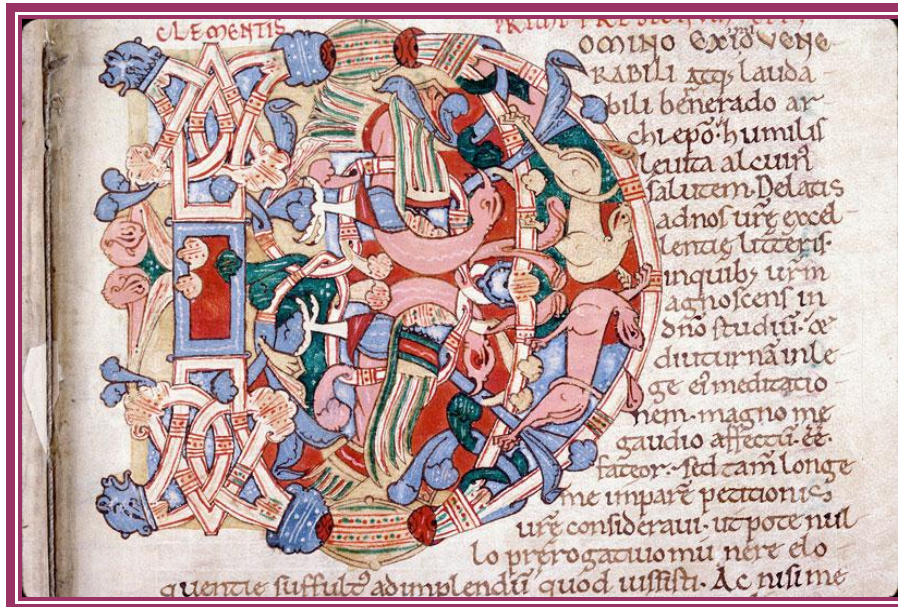 CLEMENTIS
OMINO EXIMIO VENE
RABILI atq; lauda
bili benerado ar
chiepō. humilis
leuita alcuin̄
salutem. Delatis
ad nos urē excel
lentię litteris.
in quib; urm̄
agnoscens in
dn̄o studiū. &
diuturnā in le
ge ei meditatio
nem. magno me
gaudio affectū. eē.
fateor. Sed tam longe
me imparē petitionis
urē consideraui. ut pote nul
lo prerogatiuo munere elo
quentie suffult' ad implendū quod iussisti. Ac nisi me